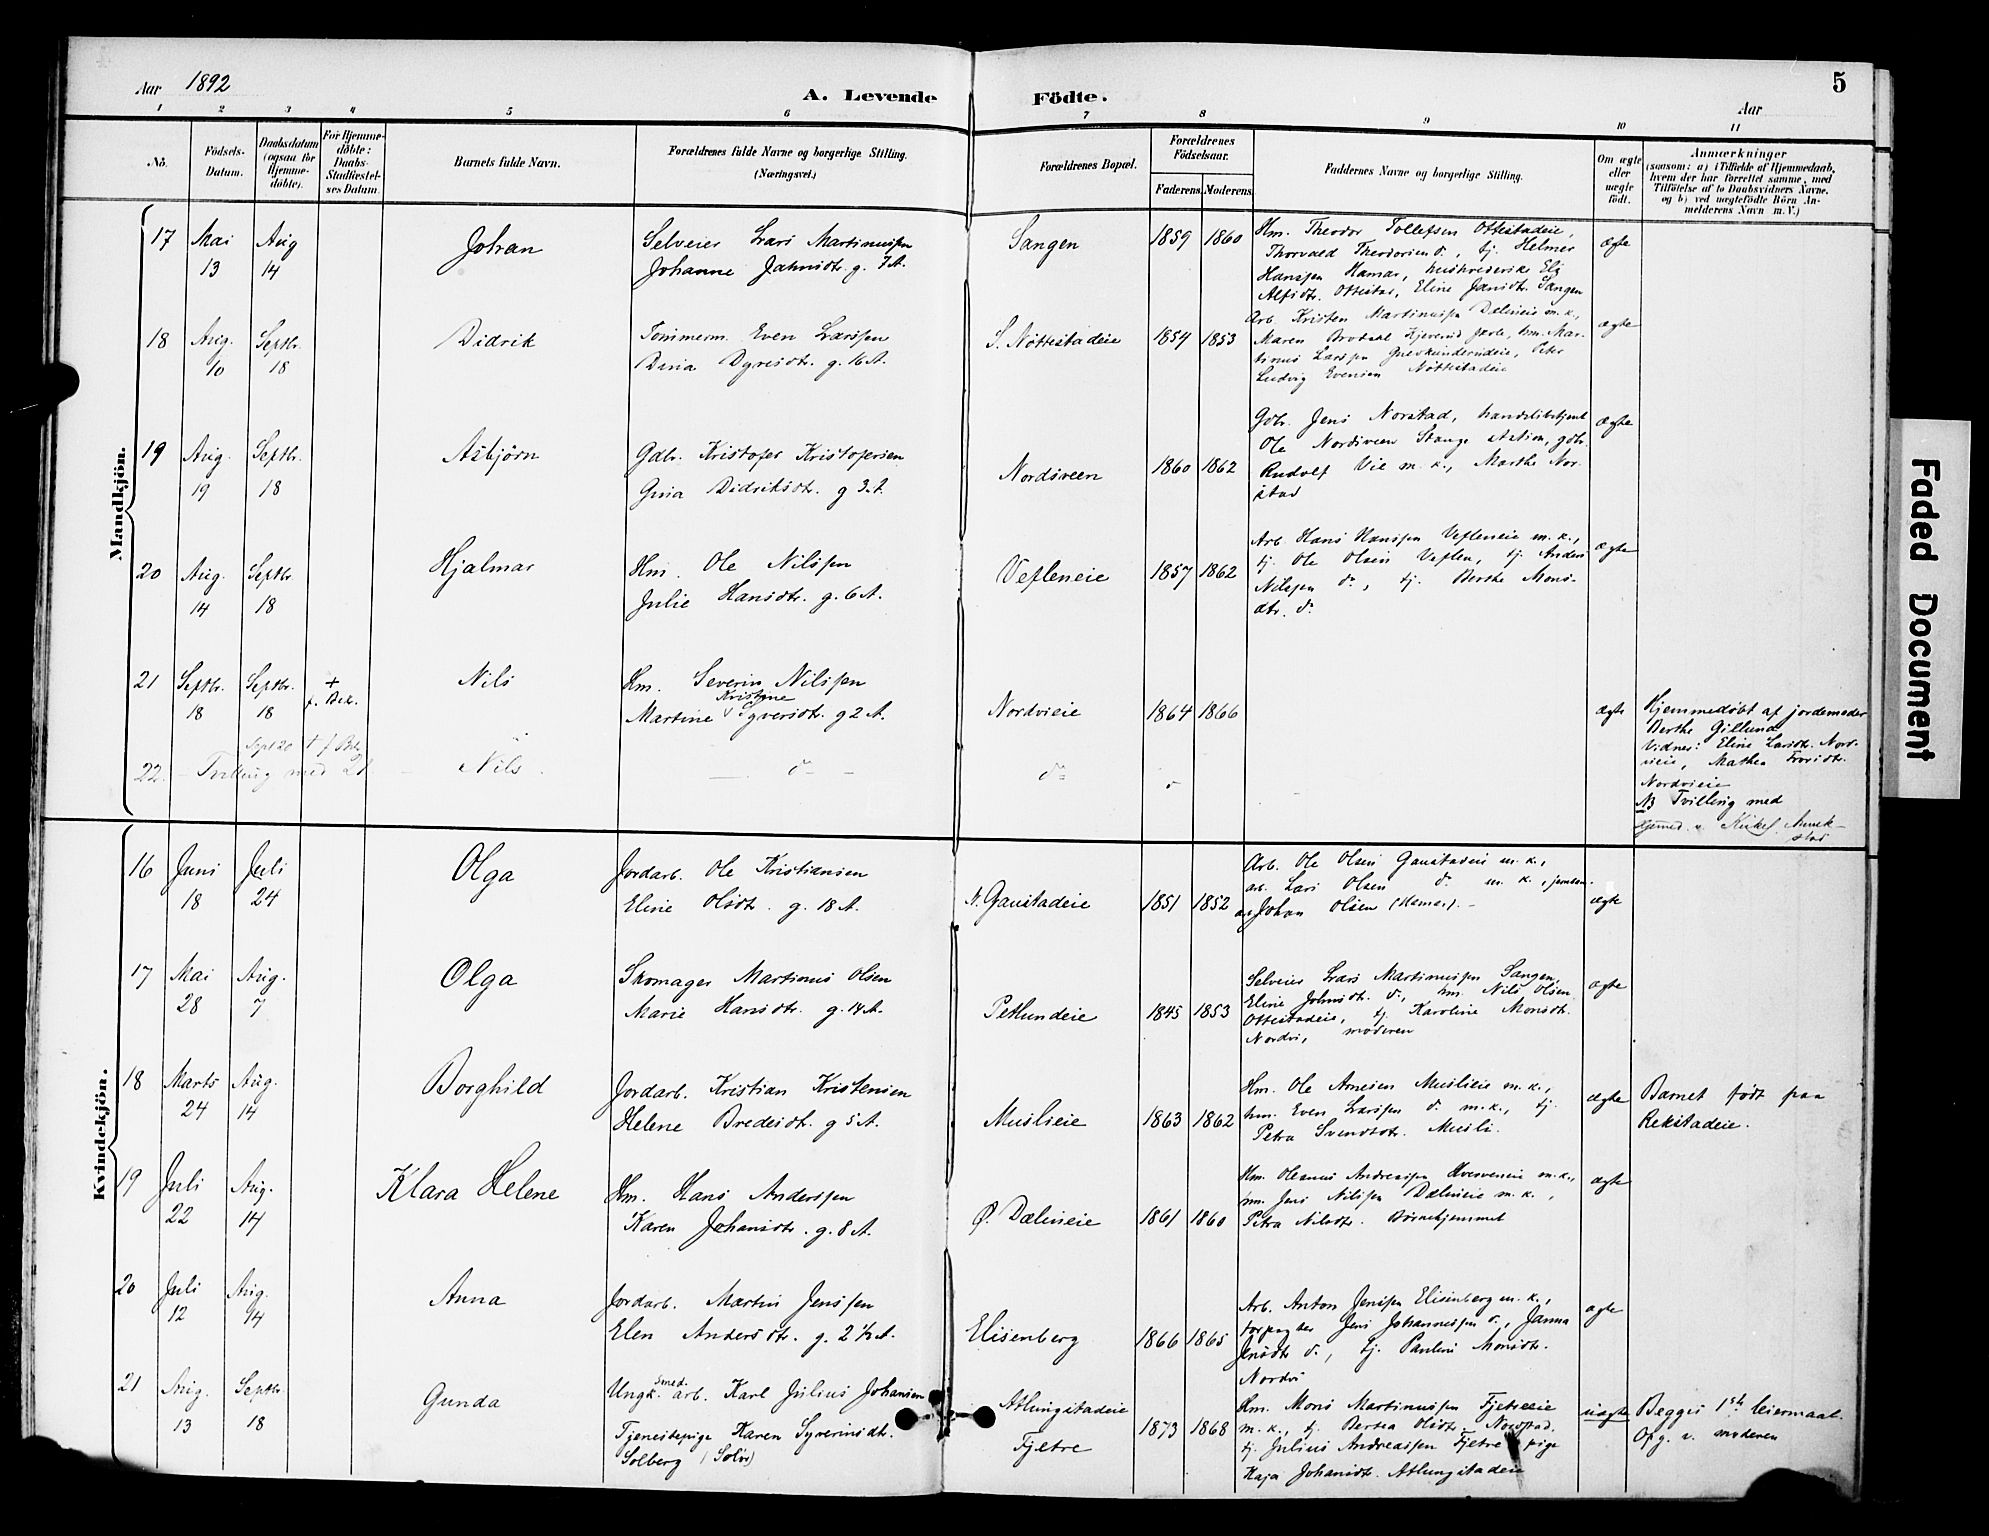 5
Aar 1892
A. Levende Födte.
Aar
1 2 3 4 5 6 7 8 9 10 11
No.
Födsels-
Datum.
Daabsdatum
(ogsaa for
Hjemme-
döbte).
For Hjemme-
döbte:
Daabs-
Stadfæstel-
ses Datum.
Barnets fulde Navn.
Forældrenes fulde Navne og borgerlige Stilling.
(Næringsvei.)
Forældrenes Bopæl.
Forældrenes
Födselsaar.
Faderens. Moderens.
Faddernes Navne og borgerlige Stilling.
Om ægte
eller
uægte
födt.
Anmærkninger
(saasom: a) i Tilfælde af Hjemmedaab,
hvem der har forrettet samme, med
Tilföielse af to Daabsvidners Navne.
og b) ved uægtefödte Börn An-
melderens Navn m. V.)
Mandkjön.
17 Mai 13 Aug 14
Johan
Selveier Lars Martinussen
Johanne Jahnsdtr. g. 7 A.
Sangen
1859 1860
Hm. Theodor Tollefsen Ottestadeie,
Thorvald Theodorsen do, tj. Helmer
Hanssen Hamar,
Alfsdtr. Ottestad, Eline Jansdtr. Sangen
ægte
18 Aug. 10 Septbr. 18
Didrik
Tømmerm. Even Larssen
Dina Dyresdtr. g. 16 A.
S. Nøttestadeie
1854 1853
Arb. Kristen Martinussen Dælineie m. k.,
Maren hm. Mar-
tinus Larssen Peter
Ludvig Evensen Nøttestadeie
ægte
19 Aug. 19 Septbr. 18
Asbjørn
Gdbr. Kristofer Kristofersen
Gina Didriksdtr. g 3 A.
Nordsveen
1860 1862
Gdbr. Jens Norstad, handelsbetjent
Ole Nordsveen Stange Station, gdbr.
Rudolf Vie m. k., Marthe Nor-
stad
ægte
20 Aug. 14 Septbr. 18
Hjalmar
Hm. Ole Nilssen
Julie Hansdtr. g. 6 A.
Vefleneie
1857 1862
Arb. Hans Hanssen Vefleneie m. k.,
tj. Ole Olsen Veflen, tj. Anders
Nilssen do, tj. Berthe Mons-
dtr. do
ægte
21 Septbr. 18 Septbr. 18 +
f. Bek.
Nils
Hm. Severin Nilssen
Kristine
Martine Syversdtr. g 2 A.
Nordvieie
1864 1866
ægte
Hjemmedøbt af jordemoder
Berthe Gillund
Vidner: Eline Larsdtr. Nord-
vieie, Mathea
Nordvieie
NB Tvilling med
22. Tvilling med 21
Sept 20 + f. Bek.
Nils
do
do
Kvindekjön.
16 Juni 18 Juli 24
Olga
Jordarb. Ole Kristiansen
Eline Olsdtr. g. 18 A.
N. Gaustadeie
1851 1852
Arb. Ole Olsen Gaustadeie m. k.,
arb. Lars Olsen do m. k.,
Johan Olsen (Hamar).
ægte
17 Mai 28 Aug. 7
Olga
Skomager Martinus Olsen
Marie Hansdtr. g. 14 A.
Pethundeie
1845 1853
Selveier Lars Martinussen Sangen,
Eline Johnsdtr. do, hm. Nils Olsen
Ottestadeie, tj. Karoline Monsdtr.
Nordvi, moderen
ægte
18 Marts 24 Aug. 14
Borghild
Jordarb. Kristian Kristensen
Helene Bredesdtr. g 5 A.
Muslieie
1863 1862
Hm. Ole Arnesen Muslieie m. k.,
hm. Even Larssen do m. k., tj.
Petra Svendsdtr. Musli.
ægte
Barnet født paa
Rekstadeie.
19 Juli 22 Aug. 14
Klara Helene
Hm. Hans Anderssen
Karen Johansdtr. g. 8 A.
Ø. Dælineie
1861 1860
Hm. Oleanus Andreassen m. k.,
hm. Jens Nilssen Dælineie m. k.,
Petra Nilsdtr. Børnehjemmet
ægte
20 Juli 12 Aug. 14
Anna
Jordarb. Martin Jenssen
Elen Andersdtr. g. 2 ½ A.
Elisenberg
1866 1865
Arb. Anton Jenssen Elisenberg m. k.,
forpagter Jens Johannessen do, Janna
Jensdtr do, tj. Pauline Monsdtr.
Nordvi
ægte
21 Aug. 13 Septbr. 18
Gunda
Smed.
Ungk. arb. Karl Julius Johansen
Tjenestepige Karen Syverinsdtr.
Solberg
Atlungstadeie
Fjetre
1873 1868
Hm. Mons Martinussen Fjetreeie
m. k., tj. Bertea Olsdtr. Nordstad,
tj. Julius Andreassen Fjetre pige
Kaja Johansdtr. Atlungstadeie
uægte
Begges 1ste leiermaal.
Opg. v. moderen
Faded Document